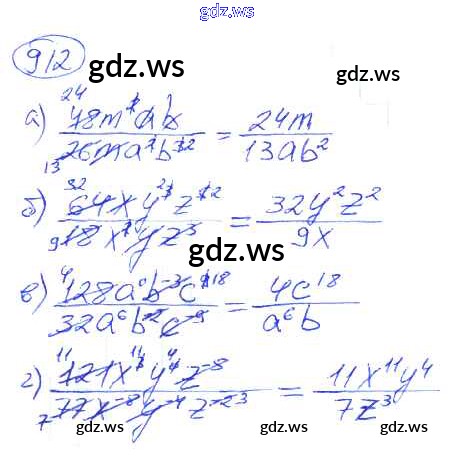 gdz.ws
912
gdz.ws
а) 48m²ab / 26ma²b² = 24m / 13ab²
gdz.ws
б) 64xy³z / 18x²yz = 32y²z² / 9x
gdz.ws
в) 128a⁰b⁻³c⁹ / 32a⁶b⁻²c⁻⁹ = 4c¹⁸ / a⁶b
gdz.ws
г) 121x³y z⁻⁸ / 77x⁻⁸y⁻⁴z = 11x¹¹y⁴ / 7z³
gdz.ws gdz.ws gdz.ws